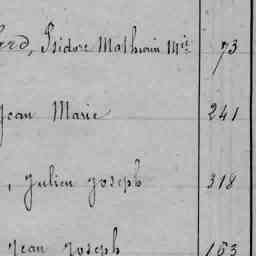 Isidore Mathurin Mie 73
Jean Marie 241
, Julien Joseph 318
Jean Joseph 163